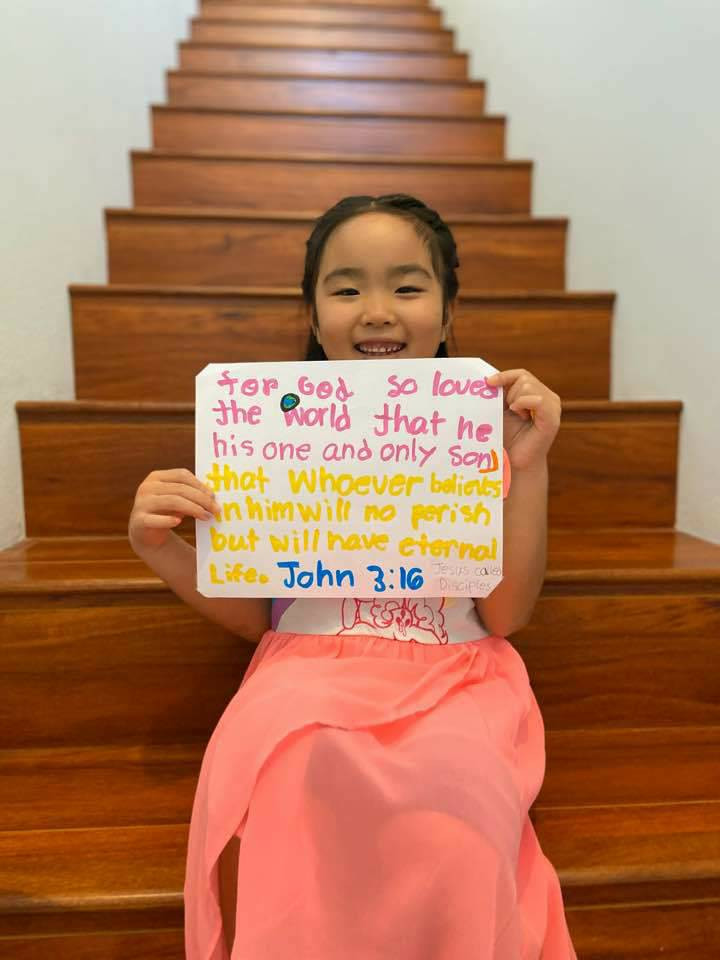 for God so loves
the world that he
his one and only Son
that Whoever believes
in him will no perish
but will have eternal
Life. John 3:16
Jesus called
Disciples